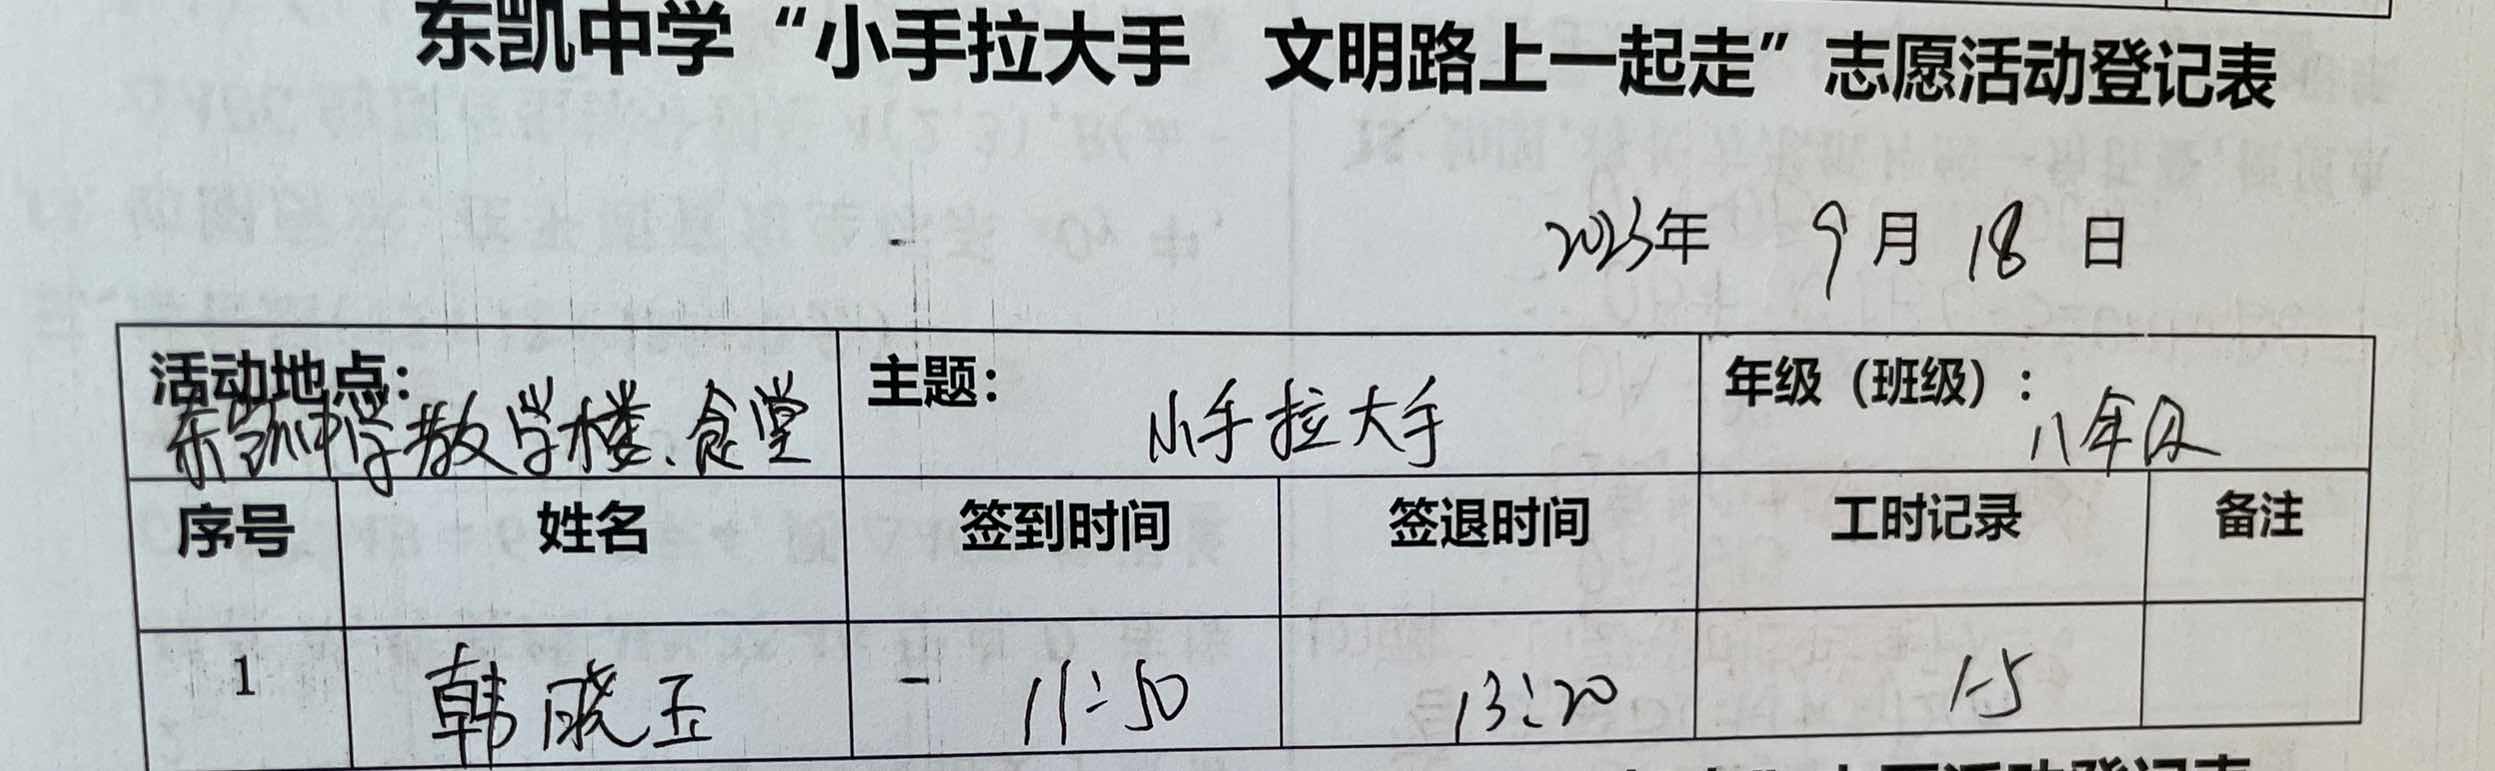 东凯中学“小手拉大手 文明路上一起走”志愿活动登记表
2023年 9月 18 日
活动地点： 东凯中学教学楼、食堂 主题： 小手拉大手 年级（班级）： 八年级
序号 姓名 签到时间 签退时间 工时记录 备注
1 韩晓玉 11:50 13:20 1.5